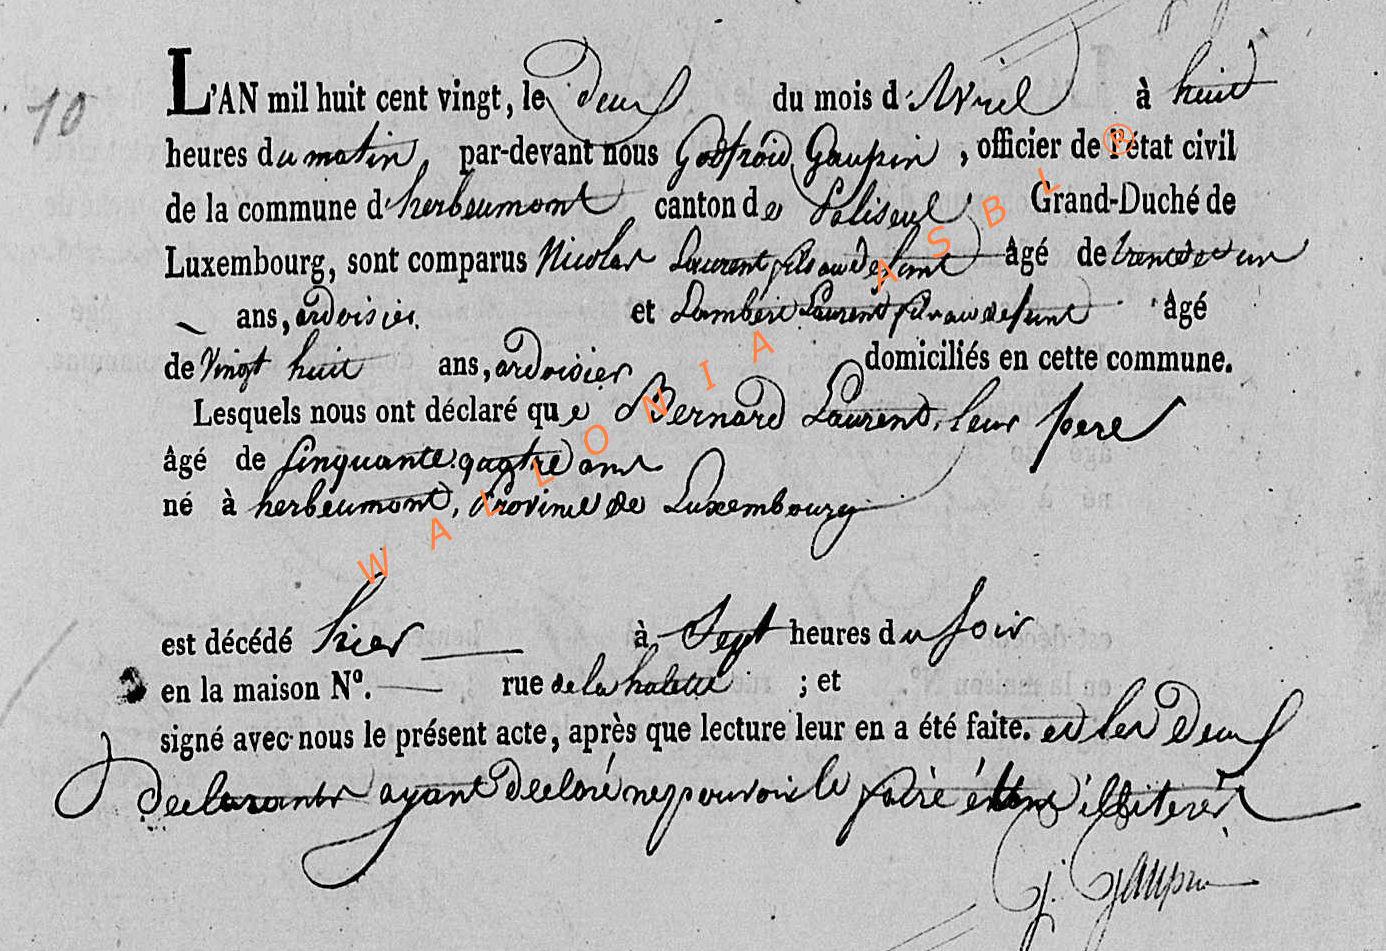 10
L'AN mil huit cent vingt, le deux du mois d'Avril à huit
heures du matin, par-devant nous Godfroid Gaupin, officier de l'état civil
de la commune d'herbeumont canton de Paliseul Grand-Duché de
Luxembourg, sont comparus Nicolas Laurent fils au defunt âgé de trente et un
ans, ardoisier. et Lambert Laurent fils au defunt âgé
de Vingt huit ans, ardoisier domiciliés en cette commune.
Lesquels nous ont déclaré que Bernard Laurent, leur pere
âgé de Cinquante quatre ans
né à herbeumont, Province de Luxembourg
est décédé hier à Sept heures du soir
en la maison Nº. rue de la ; et
signé avec nous le présent acte, après que lecture leur en a été faite. et les deux
declarants ayant declaré ne pouvoir le faire étant illiterés
G. Gaupin
WALLONIA ASBL ®